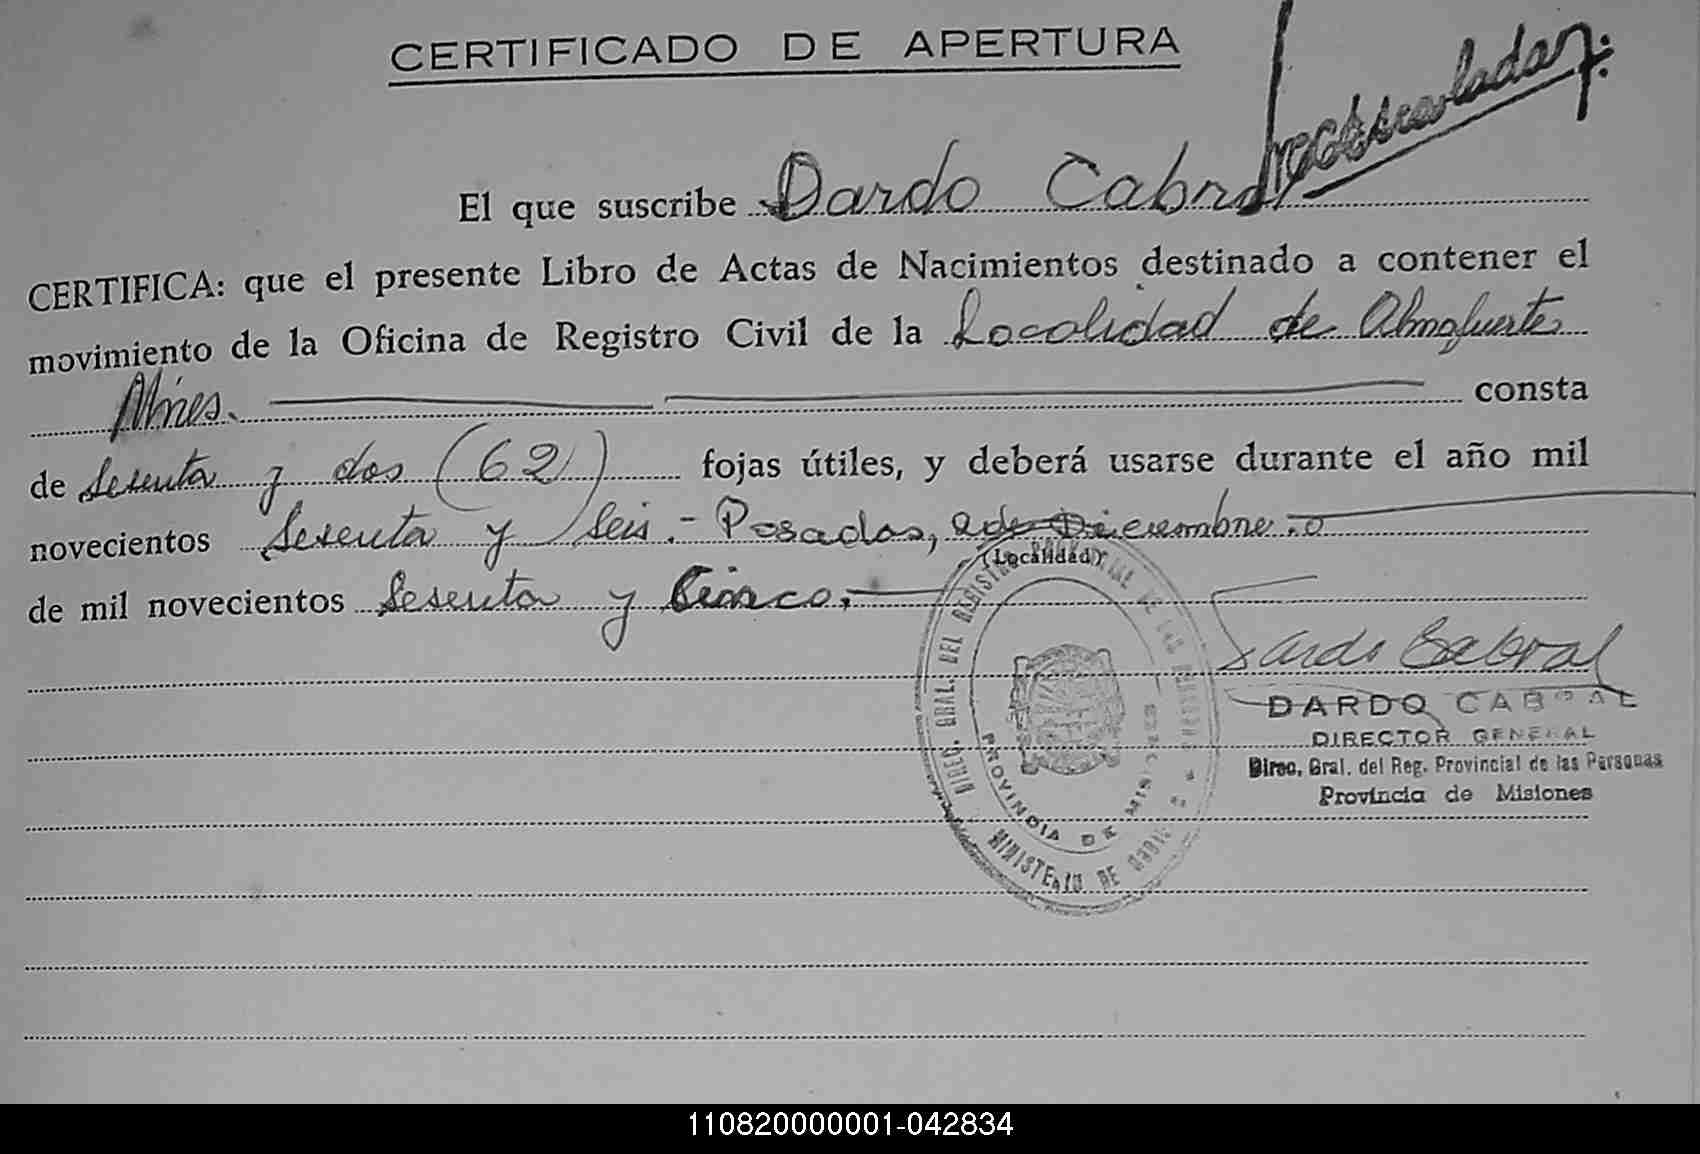 CERTIFICADO DE APERTURA
El que suscribe Dardo Cabral
CERTIFICA: que el presente Libro de Actas de Nacimientos destinado a contener el
movimiento de la Oficina de Registro Civil de la Localidad de Almafuerte
Mnes. consta
de Sesenta y dos (62) fojas útiles, y deberá usarse durante el año mil
novecientos Sesenta y Seis.- Posadas, Diciembre
(Localidad)
de mil novecientos Sesenta y Cinco.
Dardo Cabral
DARDO CABRAL
DIRECTOR GENERAL
Direc. Gral. del Reg. Provincial de las Personas
Provincia de Misiones
DIREC. GRAL. DEL REGISTRO PROVINCIAL DE LAS PERSONAS
MINISTERIO DE
PROVINCIA DE MISIONES
110820000001-042834